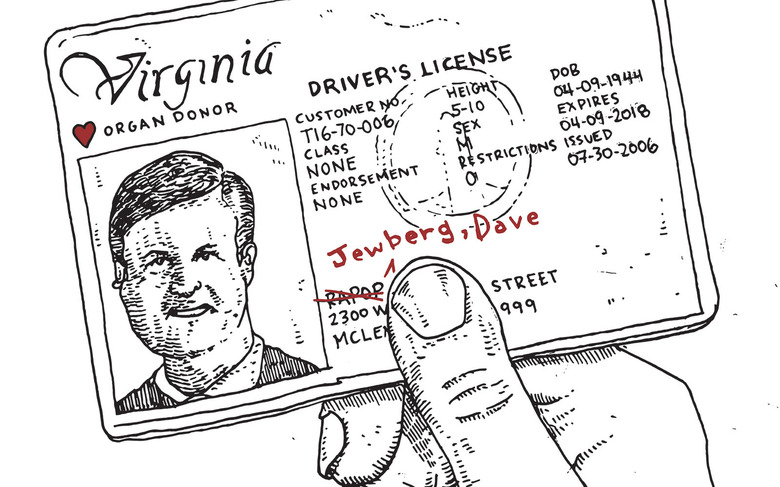 Virginia
ORGAN DONOR
DRIVER'S LICENSE
CUSTOMER NO.
T16-70-006
CLASS
NONE
ENDORSEMENT
NONE
HEIGHT
5-10
SEX
M
RESTRICTIONS
0
DOB
04-09-1944
EXPIRES
04-09-2018
ISSUED
07-30-2006
Jewberg, Dave
RAPOP
2300 W STREET
MCLE 999